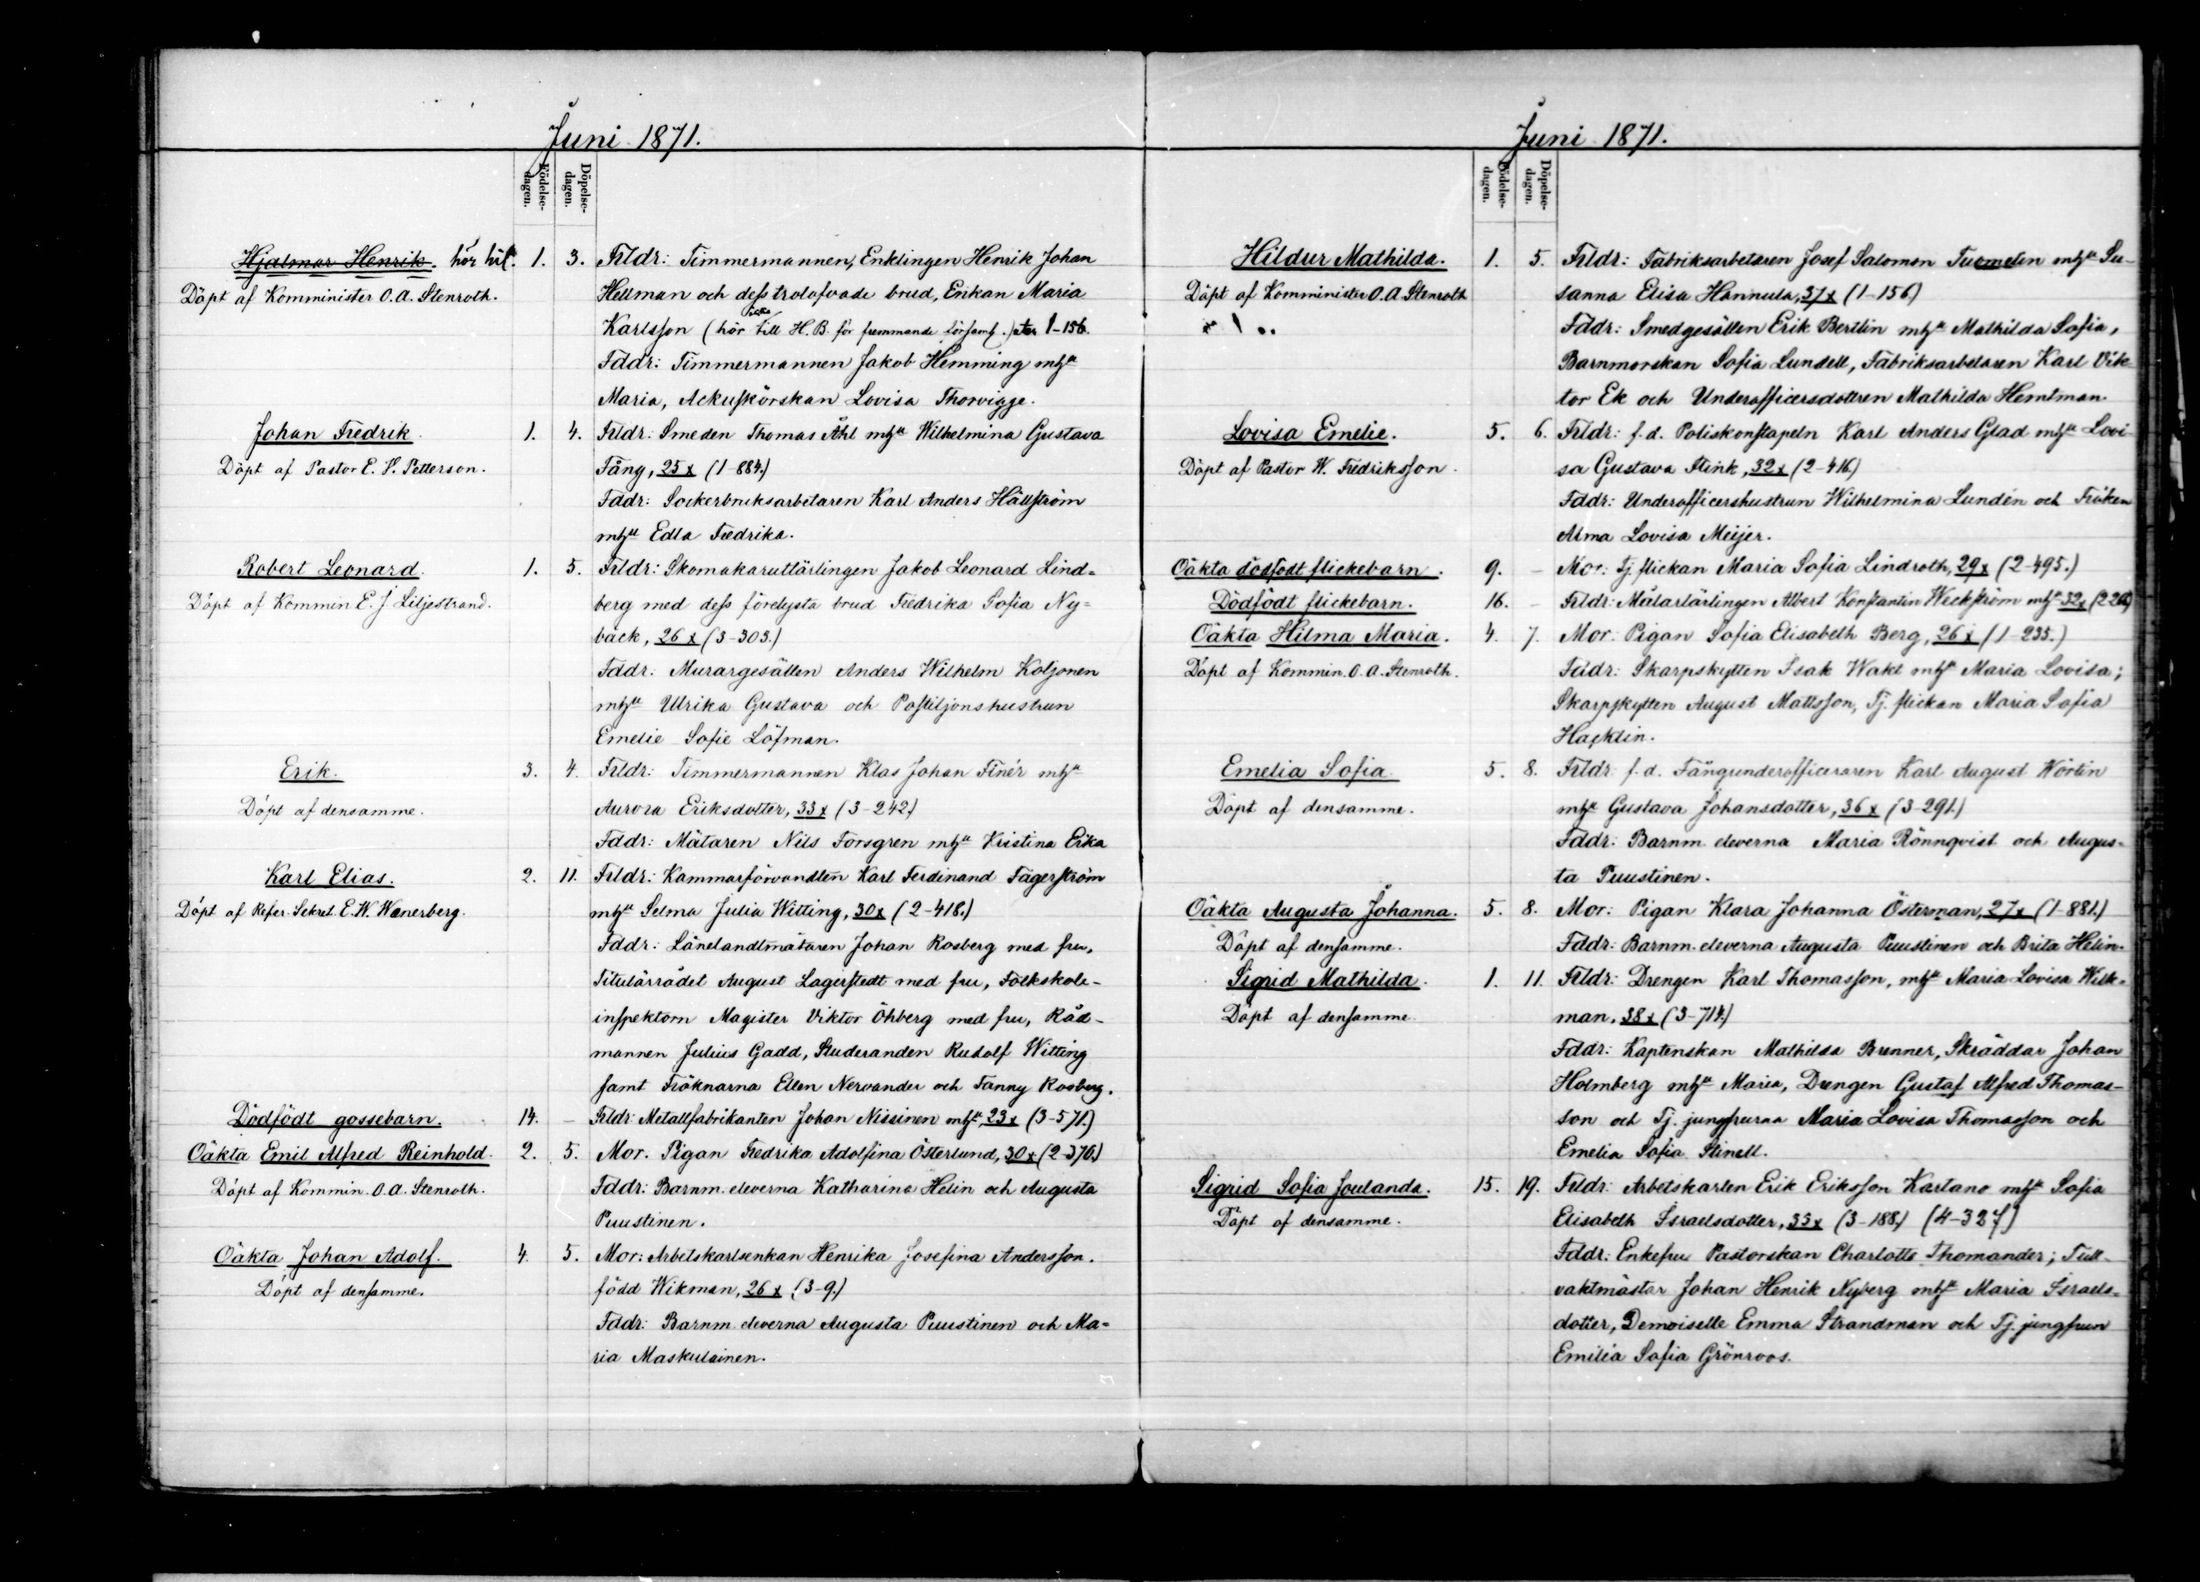 Juni 1871.
Födelse-
dagen.
Döpelse-
dagen.
Hjalmar Henrik. hör hit. 1. 3. Frldr: Timmermannen, Enklingen Henrik Johan
Döpt af Komminister O. A. Stenroth. Hellman och dess trolofvade brud, Enkan Maria
Karlsson (hör till H. B. för främmande församl.) 1-156.
Fddr: Timmermannen Jakob Hemming mhu
Maria, Lovisa Thorvigge.
Johan Fredrik. 1. 4. Frldr: Smeden Thomas Åhl mhu Wilhelmina Gustava
Döpt af Pastor E. V. Petterson. Fång, 25 x (1-884.)
Fddr: Sockerbruksarbetaren Karl Anders Hällström
mhu Edla Fredrika.
Robert Leonard. 1. 5. Frldr: Skomakaruttärlingen Jakob Leonard Lind-
Döpt af Kommin E. J. Liljestrand. berg med dess förelysta brud Fredrika Sofia Ny-
bäck, 26 x (3-303.)
Fddr: Murargesällen Anders Wilhelm Koljonen
mhu Ulrika Gustava och Postiljonshustrun
Emelie Sofie Löfman.
Erik. 3. 4. Frldr: Timmermannen Klas Johan Finér mhu
Döpt af densamme. Aurora Eriksdotter, 33 x (3-242.)
Fddr: Mätaren Nils Forsgren mhu Kristina Erika
Karl Elias. 2. 11. Frldr: Kammarförvandten Karl Ferdinand Fagerström
Döpt af Refer. Sekret. E. W. Wænerberg. mhu Selma Julia Witting, 30 x (2-418.)
Fddr: Länelandtmätaren Johan Rosberg med fru,
Titulärrådet August Lagerstedt med fru, Folkskole-
inspektorn Magister Viktor Öhberg med fru, Råd-
mannen Julius Gadd, Studeranden Rudolf Witting
samt Fröknarna Ellen Nervander och Fanny Rosberg.
Dödfödt gossebarn. 14. – Frldr: Metallfabrikanten Johan Nissinen mhu, 23 x (3-571.)
Oäkta Emil Alfred Reinhold. 2. 5. Mor. Pigan Fredrika Adolfina Österlund, 30 x (2-370.)
Döpt af Kommin. O. A. Stenroth. Fddr: Barnm. eleverna Katharina Helin och Augusta
Puustinen.
Oäkta Johan Adolf. 4. 5. Mor: Arbetskarlsenkan Henrika Josefina Andersson.
Döpt af densamme. född Wikman, 26 x (3-9.)
Fddr: Barnm. eleverna Augusta Puustinen och Ma-
ria Maskulainen.
Juni 1871.
Födelse-
dagen.
Döpelse-
dagen.
Hildur Mathilda. 1. 5. Frldr: Fabriksarbetaren Josef Salomon Tuomelin mhu Su-
Döpt af Komminister O. A. Stenroth sanna Elisa Hannula, 37 x (1-156.)
Fddr: Smedgesällen Erik Bertlin mhu Mathilda Sofia,
Barnmorskan Sofia Lundell, Fabriksarbetaren Karl Vik-
tor Ek och Underofficersdottren Mathilda Hemtman.
Lovisa Emelie. 5. 6. Frldr: f. d. Poliskonstapeln Karl Anders Glad mhu Lovi-
Döpt af Pastor W. Fredriksson. sa Gustava Flink, 32 x (2-416.)
Fddr: Underofficershustrun Wilhelmina Lundén och Fröken
Alma Lovisa Meijer.
Oäkta dödfödt flickebarn. 9. – Mor: Tj. flickan Maria Sofia Lindroth, 29 x (2-495.)
Dödfödt flickebarn. 16. – Frldr: Målarlärlingen Albert Konstantin Weckström mhu 32 x
Oäkta Hilma Maria. 4. 7. Mor: Pigan Sofia Elisabeth Berg, 26 x (1-235.)
Döpt af Kommin. O. A. Stenroth. Fddr: Skarpskytten Isak Wakt mhu Maria Lovisa;
Skarpskytten August Mattsson, Tj. flickan Maria Sofia
Hacklin.
Emelia Sofia. 5. 8. Frldr: f. d. Fångunderofficeraren Karl August Hörlin
Döpt af densamme. mhu Gustava Johansdotter, 36 x (3-291.)
Fddr: Barnm. eleverna Maria Rönnqvist och Augus-
ta Puustinen.
Oäkta Augusta Johanna. 5. 8. Mor: Pigan Klara Johanna Österman, 27 x (1-881.)
Döpt af densamme. Fddr: Barnm. eleverna Augusta Puustinen och Brita Helin.
Sigrid Mathilda. 1. 11. Frldr: Drengen Karl Thomasson, mhu Maria Lovisa Wilk-
Döpt af densamme. man, 38 x (3-714.)
Fddr: Kaptenskan Mathilda Brenner, Skräddar Johan
Holmberg mhu Maria, Drengen Gustaf Alfred Thomas-
son och Tj. jungfrurna Maria Lovisa Thomasson och
Emelia Sofia Stinell.
Sigrid Sofia Joulanda. 15. 19. Frldr: Arbetskarlen Erik Eriksson Kartano mhu Sofia
Döpt af densamme. Elisabeth Israelsdotter, 33 x (3-188.) (4-327)
Fddr: Enkefru Pastorskan Charlotte Thomander; Tull-
vaktmästar Johan Henrik Nyberg mhu Maria Israels-
dotter, Demoiselle Emma Strandman och Tj. jungfrun
Emilia Sofia Grönroos.